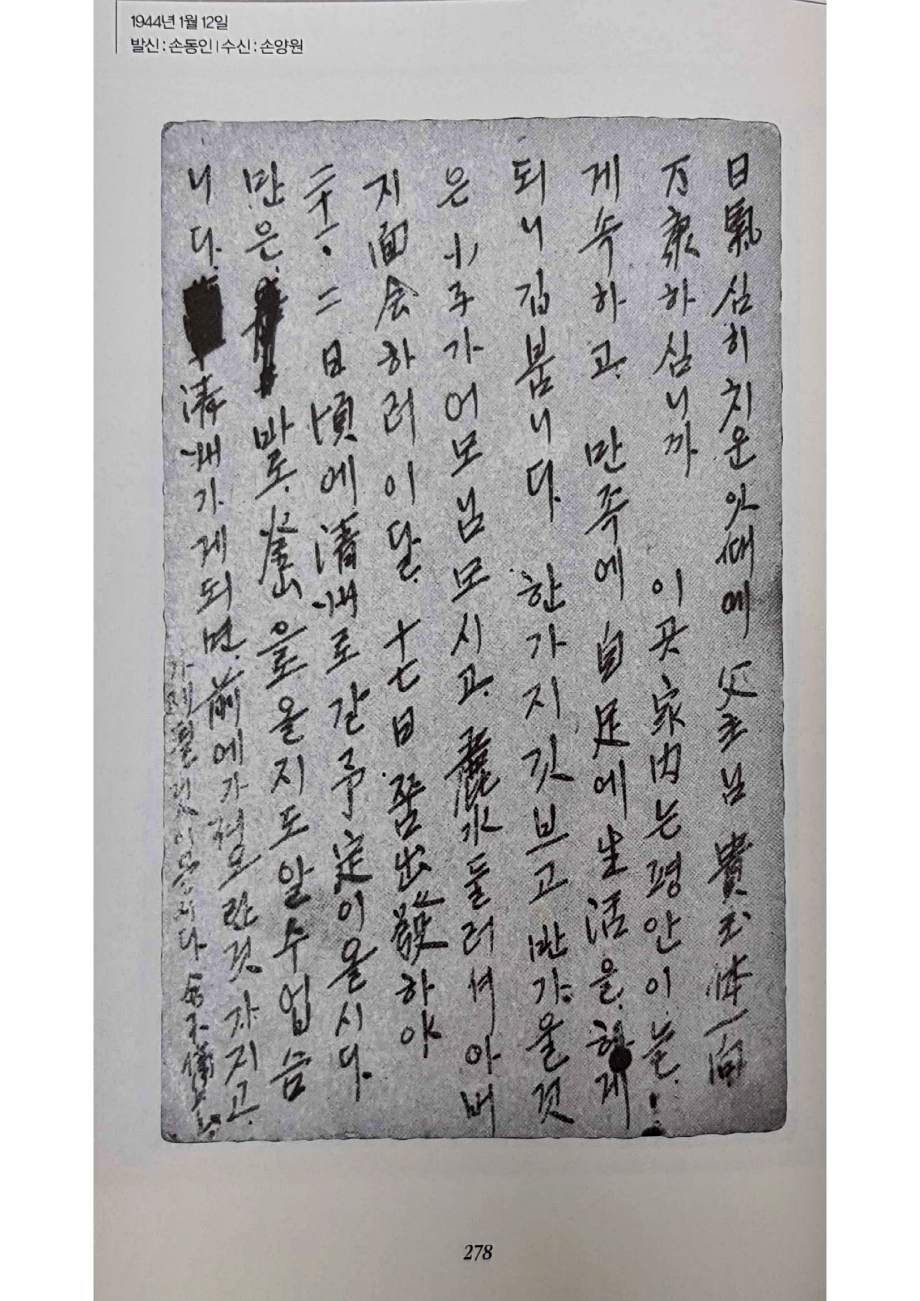 1944년 1월 12일
발신 : 손동인 | 수신 : 손양원
日氣심히치운잇때에 父主님 貴玉体一向
万康하심니까 이곳家內는평안이늘
게속하고 만족에自足에生活을하게
되니깁붐니다 한가지깃브고반가울것
은小子가어모님모시고麗水둘러셔아버
지面会하러이달十七日 出發하야
二十一、二日頃에淸州로갈予定이올시다
만은 바로 釜山으로올지도알수업슴
니다 淸州가게되면前에가져오란것가지고
가게될것이올시다
278